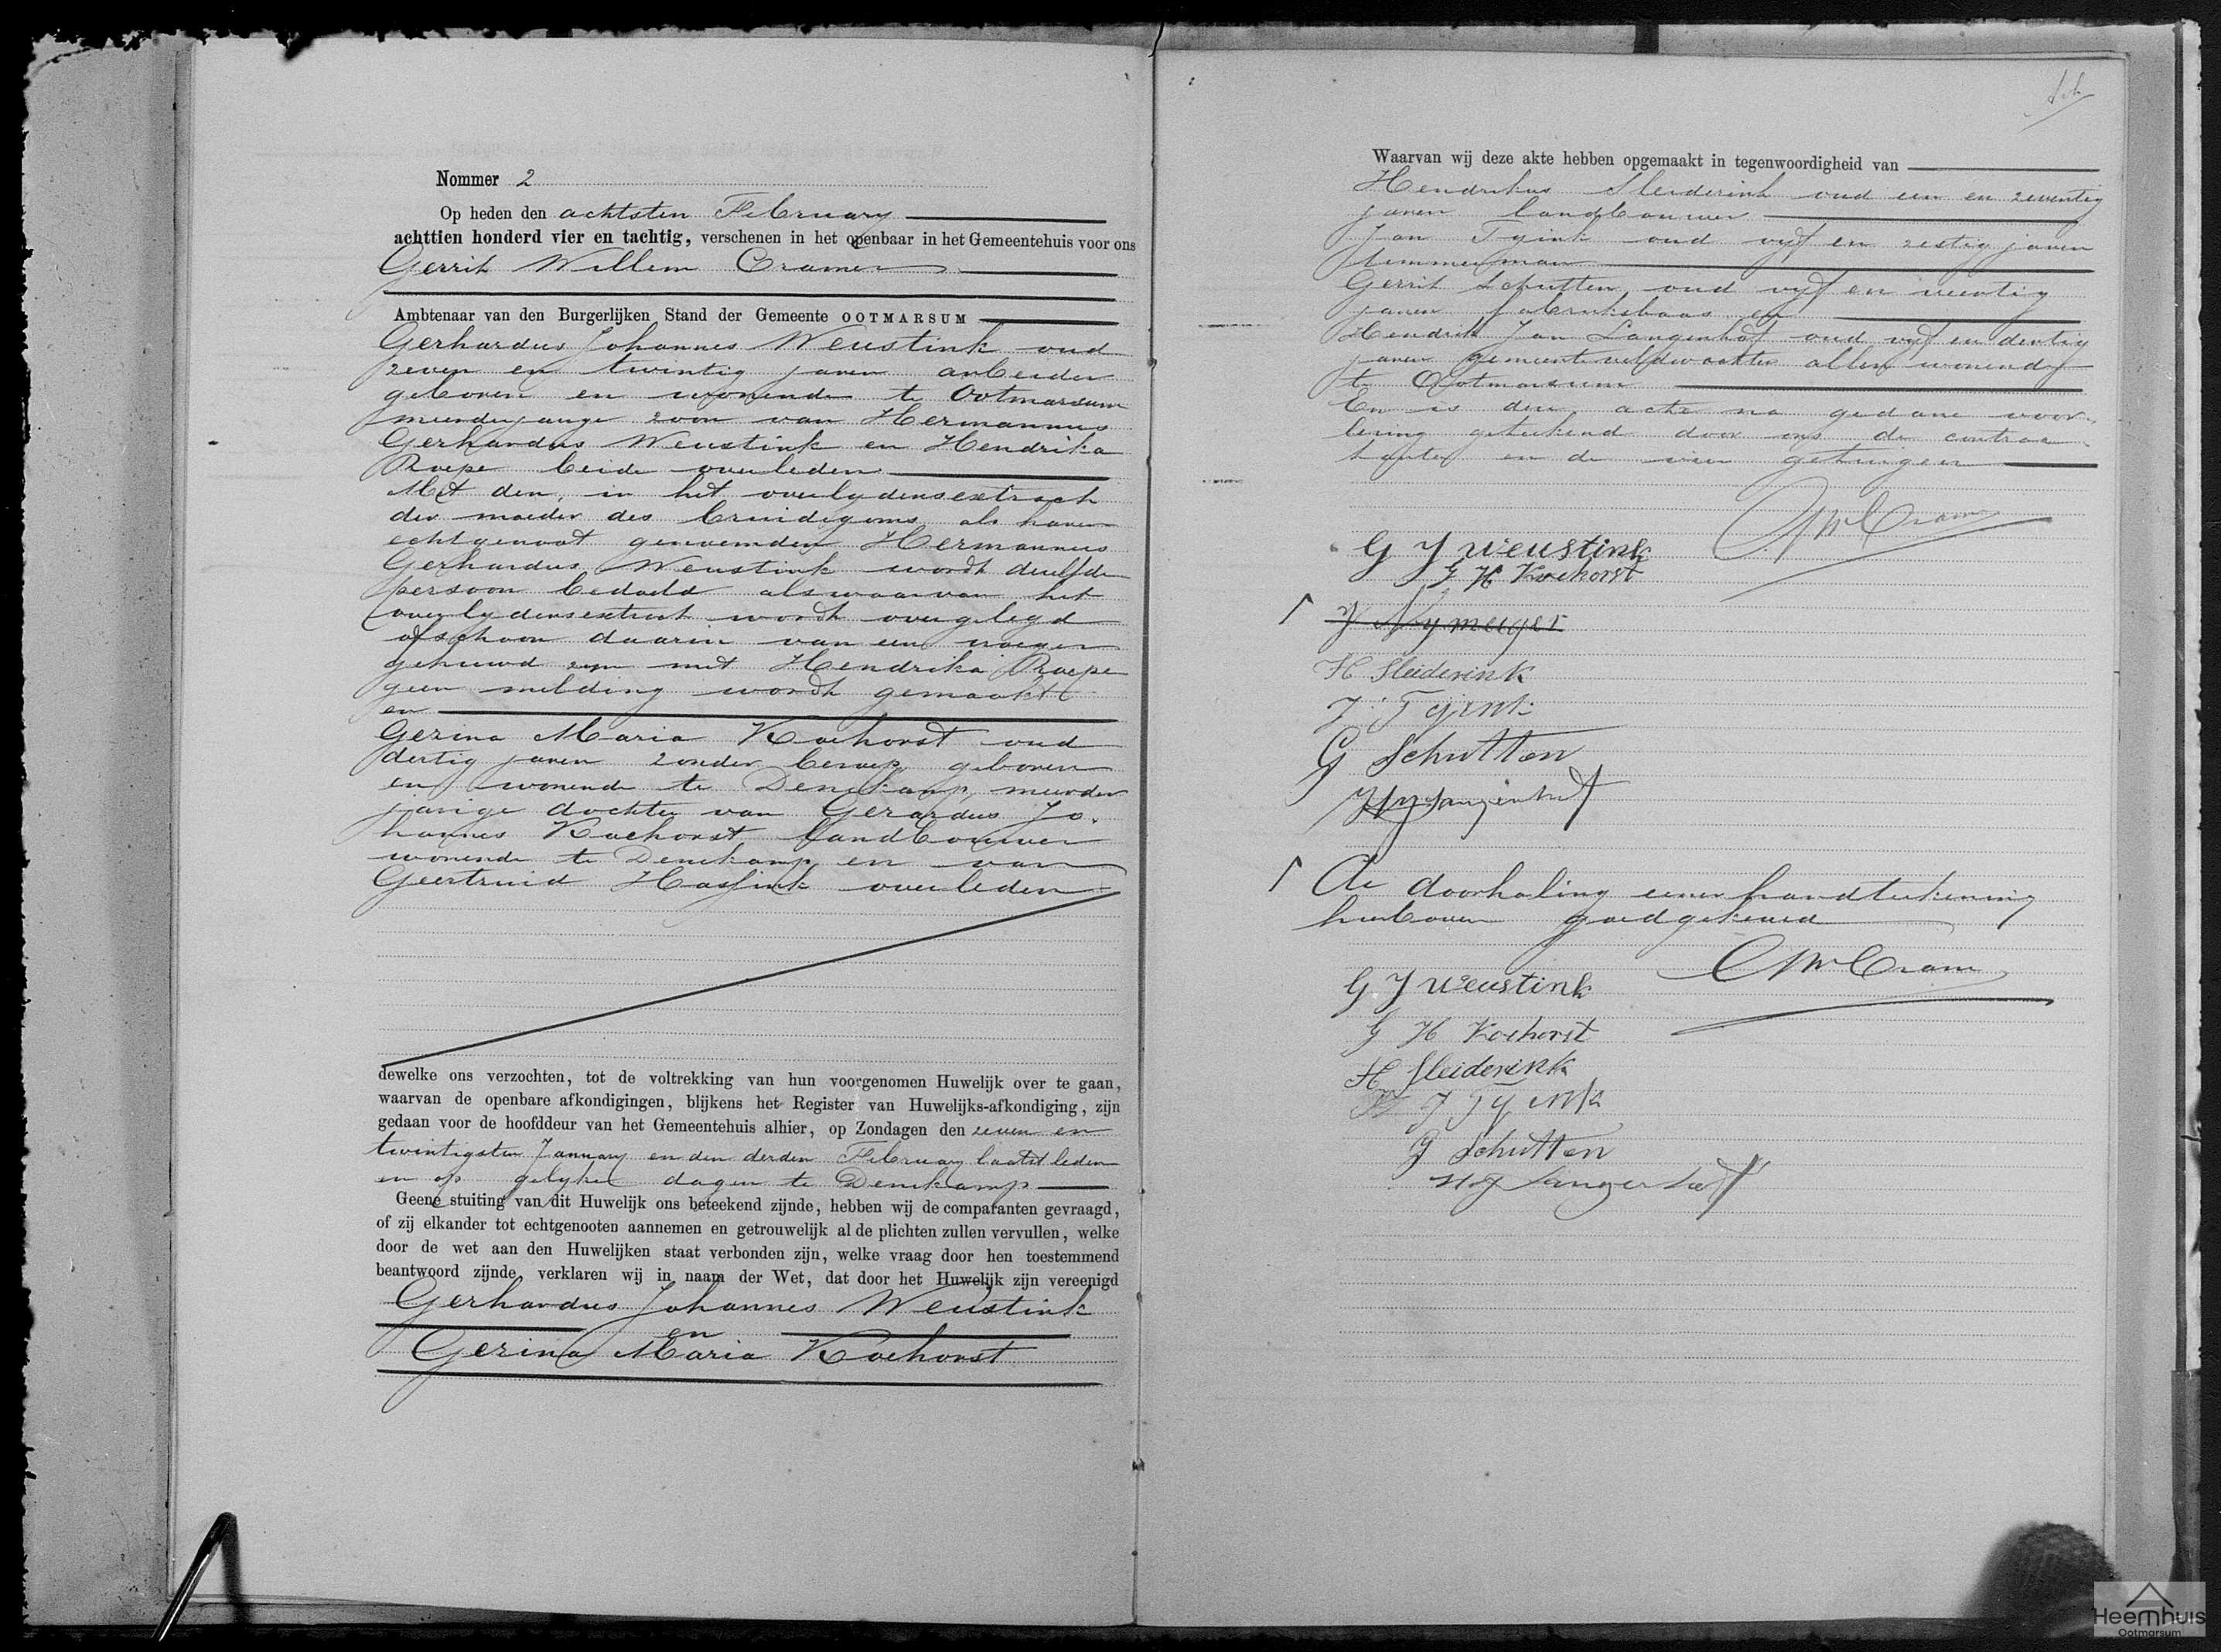 Nommer 2
Op heden den achtsten February
achttien honderd vier en tachtig, verschenen in het openbaar in het Gemeentehuis voor ons
Gerrit Willem Cramer
Ambtenaar van den Burgerlijken Stand der Gemeente OOTMARSUM
Gerhardus Johannes Weustink oud
zeven en twintig jaren arbeider
geboren en wonende te Ootmarsum
meerderjarige zoon van Hermannus
Gerhardus Weustink en Hendrika
Roepe beide overleden
Met den, in het overlydensextract
der moeder des bruidegoms als haren
echtgenoot genoemden Hermannus
Gerhardus Weustink wordt dezelfde
persoon bedoeld als waarvan het
overlydensextract wordt overgelegd
ofschoon daarin van een vroeger
gehuwd zyn met Hendrika Roepe
geen melding wordt gemaakt
en
Gerina Maria Koehorst oud
dertig jaren zonder beroep geboren
en wonende te Denekamp, meerder
jarige dochter van Gerardus Jo-
hannes Koehorst, landbouwer
wonende te Denekamp en van
Geertruid Hassink overleden
dewelke ons verzochten, tot de voltrekking van hun voorgenomen Huwelijk over te gaan,
waarvan de openbare afkondigingen, blijkens het Register van Huwelijks-afkondiging, zijn
gedaan voor de hoofddeur van het Gemeentehuis alhier, op Zondagen den zeven en
twintigsten January en den derden February laatstleden
en op gelyke dagen te Denekamp
Geene stuiting van dit Huwelijk ons beteekend zijnde, hebben wij de comparanten gevraagd,
of zij elkander tot echtgenooten aannemen en getrouwelijk al de plichten zullen vervullen, welke
door de wet aan den Huwelijken staat verbonden zijn, welke vraag door hen toestemmend
beantwoord zijnde, verklaren wij in naam der Wet, dat door het Huwelijk zijn vereenigd
Gerhardus Johannes Weustink
en
Gerina Maria Koehorst
Waarvan wij deze akte hebben opgemaakt in tegenwoordigheid van
Hendrikus Sleiderink oud een en zeventig
jaren landbouwer
Jan Tyink oud vyf en zestig jaren
timmerman
Gerrit Schutten, oud vyf en veertig
jaren fabrieksbaas en
Hendrik Jan Langenhof oud vyf en dertig
jaren gemeenteveldwachter allen wonende
te Ootmarsum
En is deze acte na gedane voor-
lezing geteekend door ons de contrac-
tanten en de vier getuigen
GWCramer
G J Weustink
G H Koehorst
J Nymeijer
H Sleiderink
J Tyink
G Schutten
HJ Langenhof
De doorhaling eener handteekening
hierboven goedgekeurd
GWCramer
G J Weustink
G H Koehorst
H Sleiderink
J Tyink
G Schutten
HJ Langenhof
Heemhuis
Ootmarsum